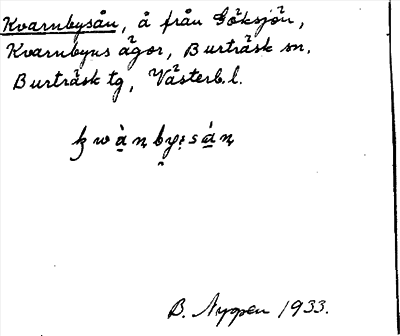 Kvarnbysån, å från Göksjön,
Kvarnbyns ägor, Burträsk sn.
Burträsk tg, Västerb. l.
B. Nygren 1933.